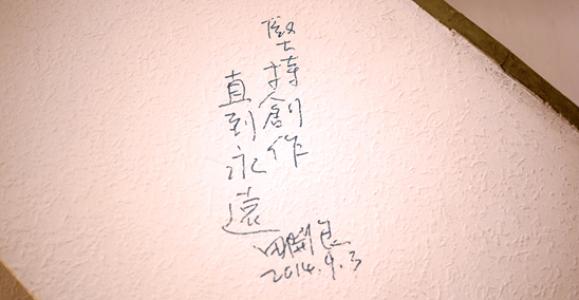 堅持創作
直到永遠
2014.9.3